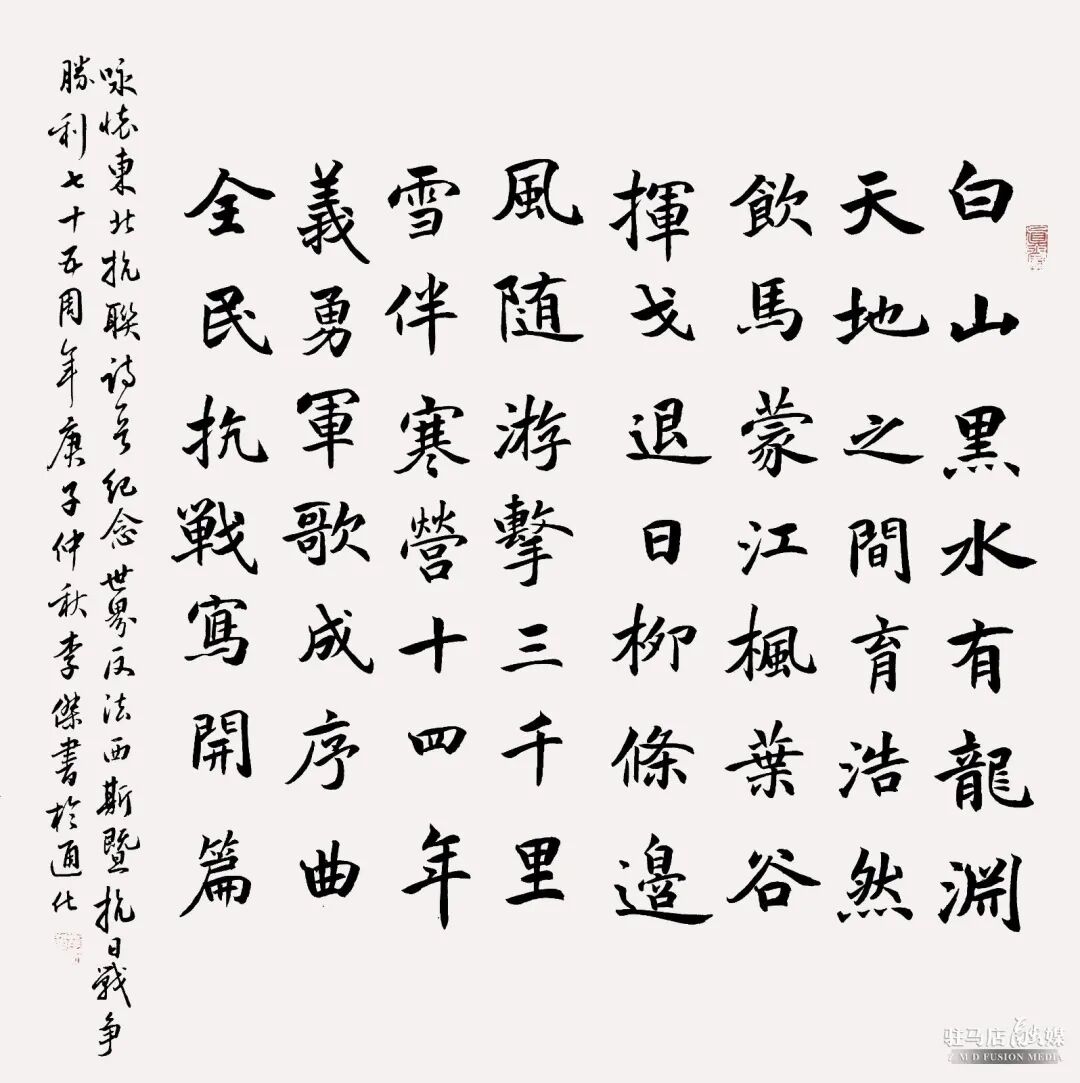 白山黑水有龍淵
天地之間育浩然
飲馬蒙江楓葉谷
揮戈退日柳條邊
風随游擊三千里
雪伴寒營十四年
義勇軍歌成序曲
全民抗戰寫開篇
咏懷東北抗聯詩一首紀念世界反法西斯暨抗日戰争
勝利七十五周年庚子仲秋李傑書於通化
驻马店融媒
Z M D FUSION MEDIA